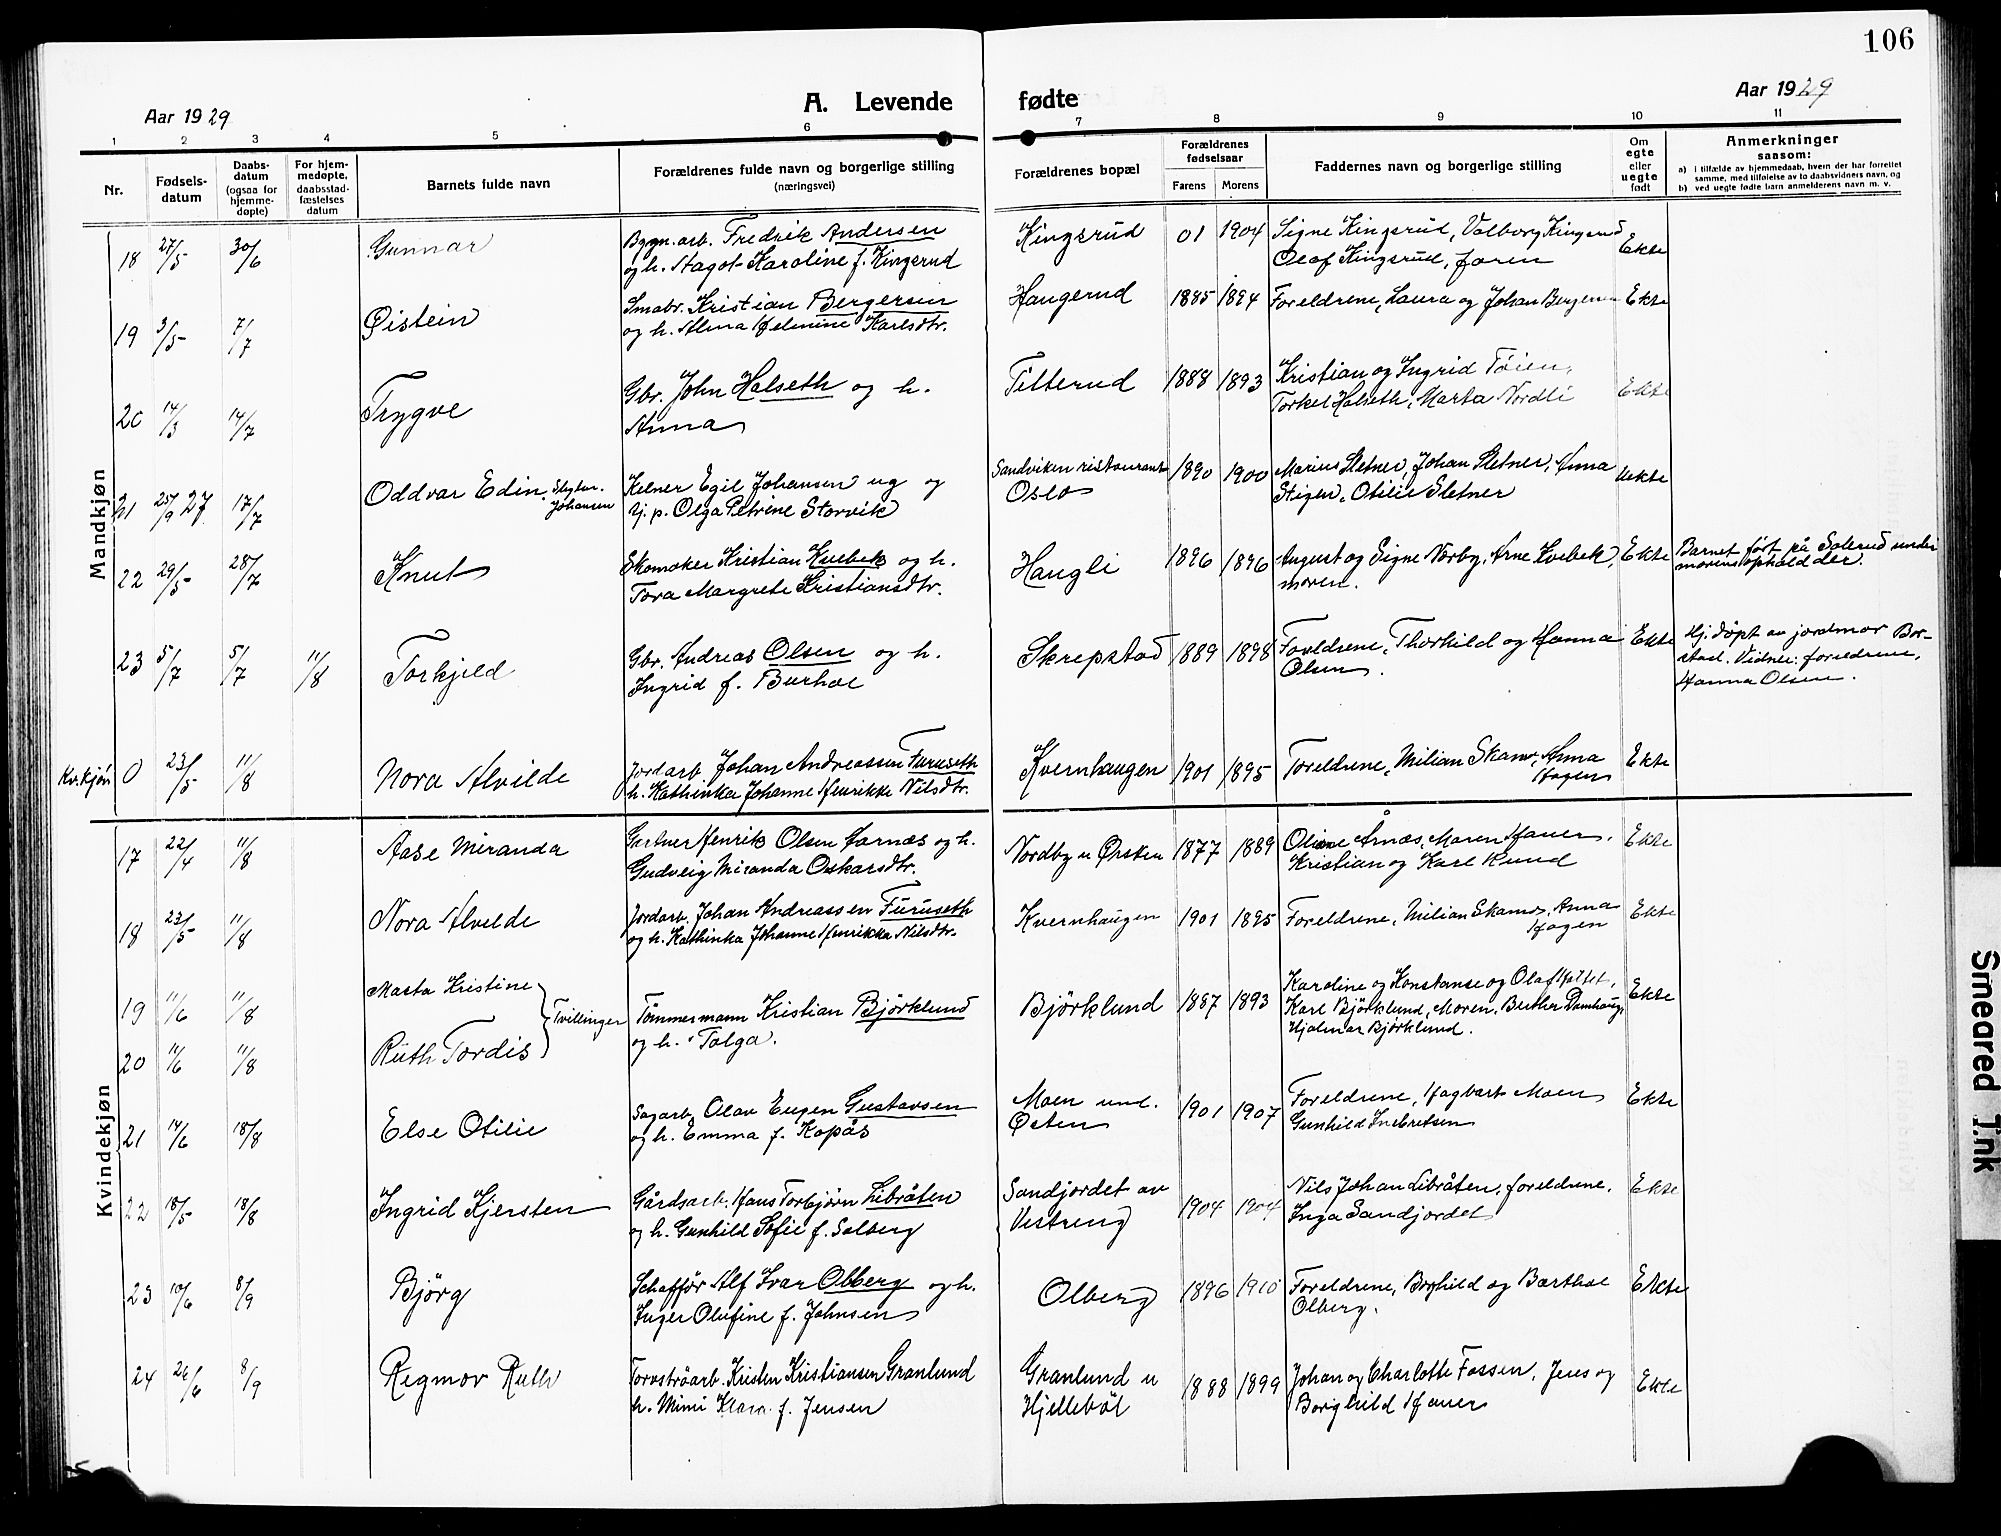 106
Aar 1929
A. Levende fødte
Aar 1929
1 2 3 4 5 6 7 8 9 10 11
Nr.
Fødsels-
datum
Daabs-
datum
(ogsaa for
hjemme-
døpte)
For hjem-
medøpte,
daabsstad-
fæstelses
datum
Barnets fulde navn
Forældrenes fulde navn og borgerlige stilling
(næringsvei)
Forældrenes bopæl
Forældrenes
fødselsaar
Farens Morens
Faddernes navn og borgerlige stilling
Om
egte
eller
uegte
født
Anmerkninger
saasom:
a) i tilfælde av hjemmedaab, hvem der har forrettet
samme, med tilføielse av to daabsvidners navn, og
b) ved uegte fødte barn anmelderens navn m. v.
Mandkjøn
18 27/5 30/6 Gunnar
Bygn.arb. Fredrik Andersen
og h. Dagot Karoline f. Kingsrud
Kingsrud 01 1904
Signe Kingsrud, Valborg Kingsrud
Olaf Kingsrud, faren
Ekte
19 3/5 7/7 Øistein
Smabr. Kristian Bergersen
og h. Alma Helmine Karlsdtr.
Haugerud 1885 1894
Foreldrene, Laura og Johan Bergersen
Ekte
20 14/3 14/7 Trygve
Gbr. John Halseth og h.
Anna
Titterud 1888 1893
Kristian og Ingrid Töien,
Torkel Halseth, Marta Nordli
Ekte
21 25/9 27 17/7 Oddvar Edin
Johansen
Kelner Egil Johansen ug og
tj. p. Olga Petrine Storvik
Sandviken restaurant
Oslo
1890 1900
Marius Sletner, Johan Sletner, Anna
Stigen, Otilie Sletner
Uekte
22 29/5 28/7 Knut
Skomaker Kristian Kvebek og h.
Tora Margrete Kristiansdtr.
Haugli 1896 1896
August og Signe Nørby, Arne Kvebek,
moren.
Ekte
Barnet født på Solerud under
morens ophold der.
23 5/7 5/7 11/8 Torkjeld
Gbr. Andreas Olsen og h.
Ingrid f. Burhol
Skrepstad 1889 1898
Foreldrene, Thorkild og Hanna
Olsen.
Ekte
Hj. døpt av jordmor Bor-
stad. Vidner: foreldrene,
Hanna Olsen.
Kv.kjøn 0 23/5 11/8 Nora Alvilde
Jordarb. Johan Andreassen Furuseth
h. Kathinka Johanne Henrikke Nilsdtr.
Kvernhaugen 1901 1895
Foreldrene, Milian Skamo, Anna
Hagen
Ekte
Kvindekjøn
17 22/4 11/8 Aase Miranda
Gartner Henrik Olsen Aarnæs og h.
Gudveig Miranda Oskarsdtr.
Nordby u Örsken 1877 1889
Oline Årnæs, Maren Hauer,
Kristian og Karl Rund
Ekte
18 23/5 11/8 Nora Alvilde
Jordarb. Johan Andreassen Furuseth
og h. Kathinka Johanne Henrikka Nilsdtr.
Kvernhaugen 1901 1895
Foreldrene, Milian Skamo, Anna
Hagen
Ekte
19 11/6 11/8 Marta Kristine
Tvillinger
20 11/6 11/8 Ruth Tordis
Tömmermann Kristian Björklund
og h. Tolga.
Björklund 1887 1893
Karoline og Konstanse og Olaf Haltet,
Karl Björklund, Moren, Berther Damhaug,
Hjalmar Björklund.
Ekte
21 14/6 18/8 Else Otilie
Sagarb. Olav Eugen Gustavsen
og h. Emma f. Kopås
Moen und.
Østen
1901 1907
Foreldrene, Hagbart Moen
Gunhild Inebretsen
Ekte
22 18/5 18/8 Ingrid Kjersten
Gårdsarb. Hans Torbjørn Libråten
og h. Gunhild Sofie f. Solberg
Sandjordet av
Vestreng
1904 1904
Nils Johan Libråten, foreldrene,
Inga Sandjordet
Ekte
23 10/6 8/9 Björg
Schafför Alf Ivar Olberg og h.
Inger Olufine f. Johnsen
Olberg 1896 1910
Foreldrene, Borghild og Barthol
Olberg.
Ekte
24 26/6 8/9 Regmor Ruth
Torvströarb. Kristen Kristiansen Granlund
h. Mimi Klara f. Jensen
Granlund u
Hjellebøl
1888 1899
Johan og Charlotte Fossen, Jens og
Borghild Hauer
Ekte
Smeared Ink